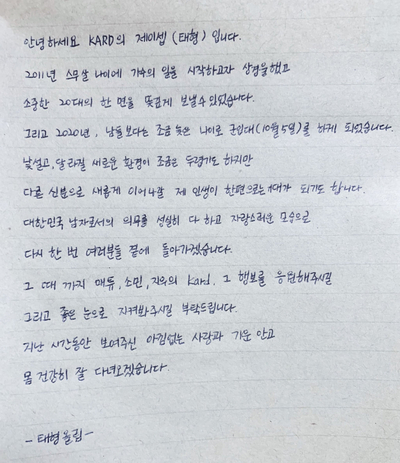 안녕하세요 KARD의 제이셉 (태형) 입니다.
2011년 스무살 나이에 가수의 일을 시작하고자 상경을 했고
소중한 20대의 한 면을 뜻깊게 보낼 수 있었습니다.
그리고 2020년, 남들보다는 조금 늦은 나이로 군입대(10월 5일)를 하게 되었습니다.
낯설고, 달라질 새로운 환경이 조금은 두렵기도 하지만
다른 신분으로 새롭게 이어나갈 제 인생이 한편으로는 기대가 되기도 합니다.
대한민국 남자로서의 의무를 성실히 다 하고 자랑스러운 모습으로
다시 한 번 여러분들 곁에 돌아가겠습니다.
그 때 까지 매튜, 소민, 지우의 Kard. 그 행보를 응원해주시길
그리고 좋은 눈으로 지켜봐주시길 부탁드립니다.
지난 시간동안 보여주신 아낌없는 사랑과 기운 안고
몸 건강히 잘 다녀오겠습니다.
- 태형 올림 -